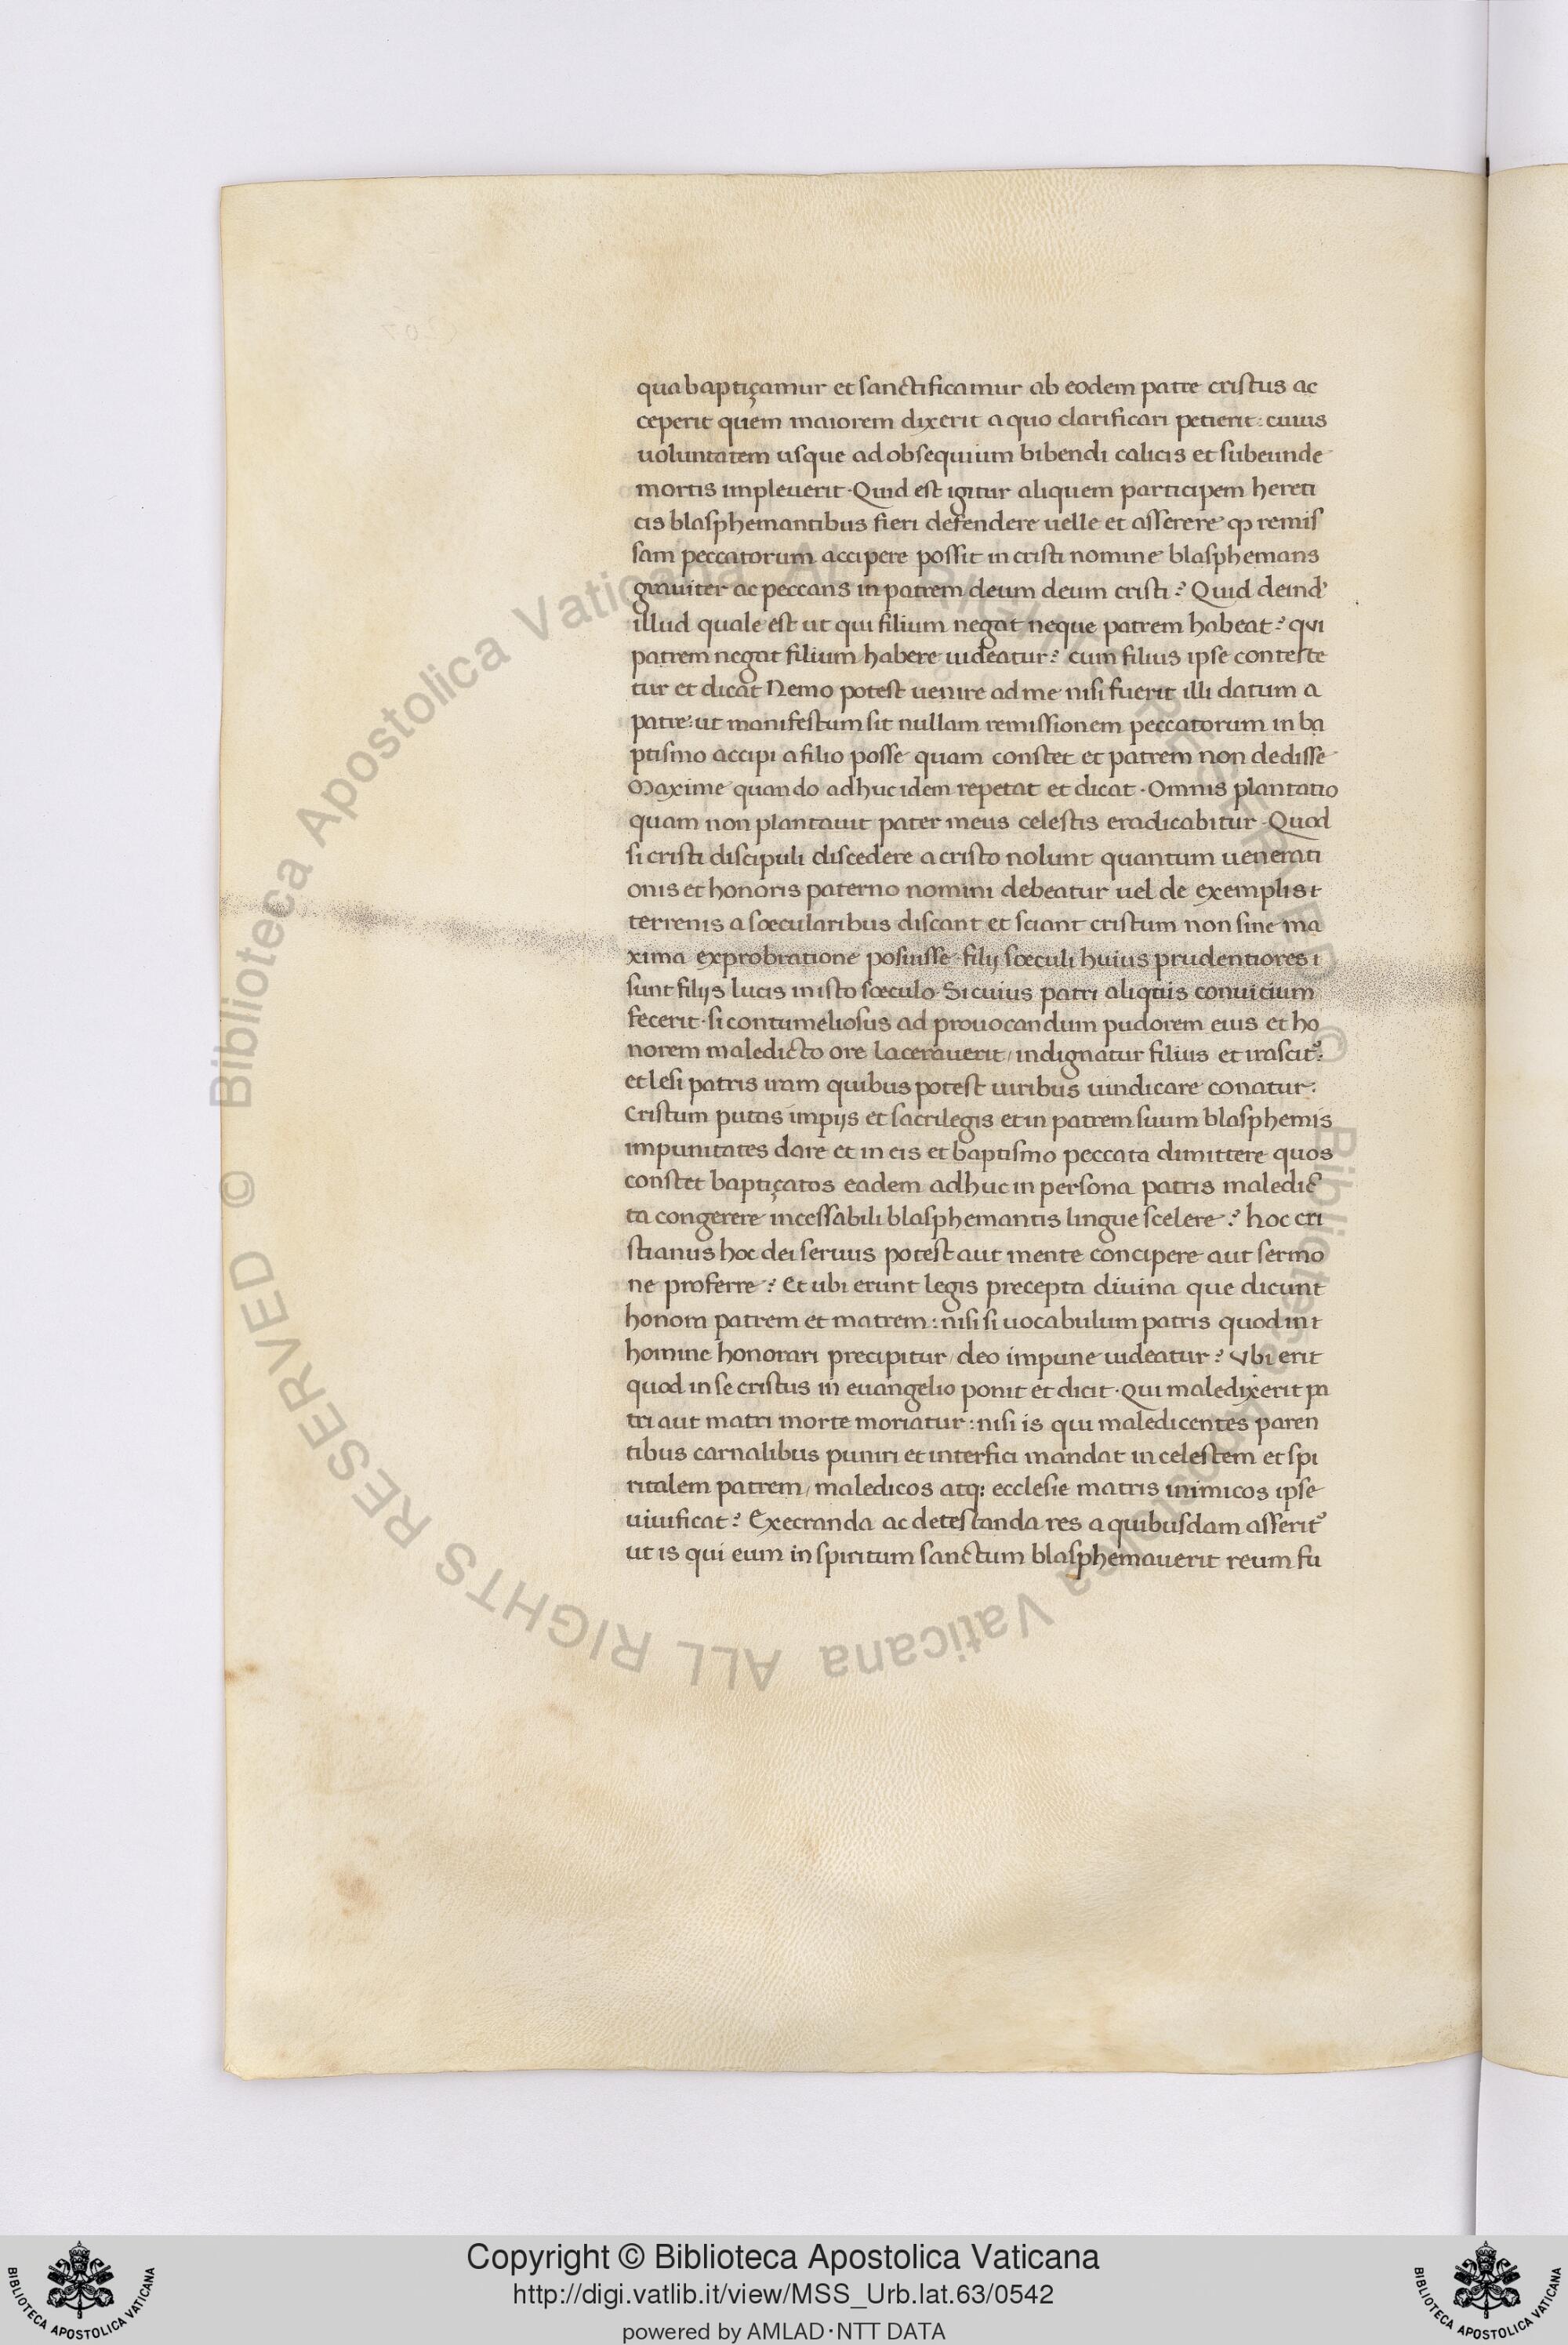 qua baptiçamur et sanctificamur ab eodem patre cristus ac
ceperit quem maiorem dixerit a quo clarificari petierit: cuius
uoluntatem usque ad obsequium bibendi calicis et subeunde
mortis impleuerit · Quid est igitur aliquem participem hereti
cis blasphemantibus fieri defendere uelle et asserere ꝙ remis
sam peccatorum accipere possit in cristi nomine blasphemans
grauiter ac peccans in patrem deum deum cristi? Quid deind'
illud quale est ut qui filium negat neque patrem habeat? qui
patrem negat filium habere uideatur? cum filius ipse conteste
tur et dicat Nemo potest uenire ad me nisi fuerit illi datum a
patre: ut manifestum sit nullam remissionem peccatorum in ba
ptismo accipi a filio posse quam constet et patrem non dedisse
Maxime quando adhuc idem repetat et dicat · Omnis plantatio
quam non plantauit pater meus celestis eradicabitur · Quod
si cristi discipuli discedere a cristo nolunt quantum uenerati
onis et honoris paterno nomini debeatur uel de exemplis t
terrenis a sœcularibus discant et sciant cristum non sine ma
xima exprobratione posuisse · filij sœculi huius prudentiores i
sunt filijs lucis in isto sœculo · Si cuius patri aliquis conuicium
fecerit · si contumeliosus ad prouocandum pudorem eius et ho
norem maledicto ore lacerauerit / indignatur filius et irascit᷒:
et lesi patris iram quibus potest uiribus uindicare conatur:
Cristum putas impijs et sacrilegis et in patrem suum blasphemis
impunitates dare et in eis et baptismo peccata dimittere quos
constet baptiçatos eadem adhuc in persona patris maledic
ta congerere incessabili blasphemantis lingue scelere? hoc cri
stianus hoc dei seruus potest aut mente concipere aut sermo
ne proferre? Et ubi erunt legis precepta diuina que dicunt
honora patrem et matrem: nisi si uocabulum patris quod in t
homine honorari precipitur / deo impune uideatur? Vbi erit
quod in se cristus in euangelio ponit et dicit · Qui maledixerit pa
tri aut matri morte moriatur: nisi is qui maledicentes paren
tibus carnalibus puniri et interfici mandat in celestem et spi
ritalem patrem / maledicos atq; ecclesie matris inimicos ipse
uiuificat? Execranda ac detestanda res a quibusdam asserit᷒
ut is qui eum in spiritum sanctum blasphemauerit reum fu
© Biblioteca Apostolica Vaticana ALL RIGHTS RESERVED © Biblioteca Apostolica Vaticana ALL RIGHTS RESERVED
Copyright © Biblioteca Apostolica Vaticana
http://digi.vatlib.it/view/MSS_Urb.lat.63/0542
powered by AMLAD·NTT DATA
BIBLIOTECA APOSTOLICA VATICANA
BIBLIOTECA APOSTOLICA VATICANA